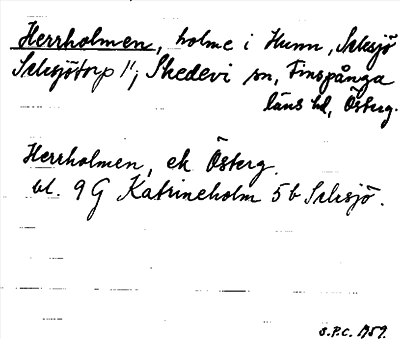 Herrholmen, holme i Hunn, Selesjö
Selesjötorp 1¹; Skedevi sn, Finspånga
läns hd, Österg.
Herrholmen, ek Österg.
bl. 9G Katrineholm 5b Selesjö.
S.P.C. 1959.